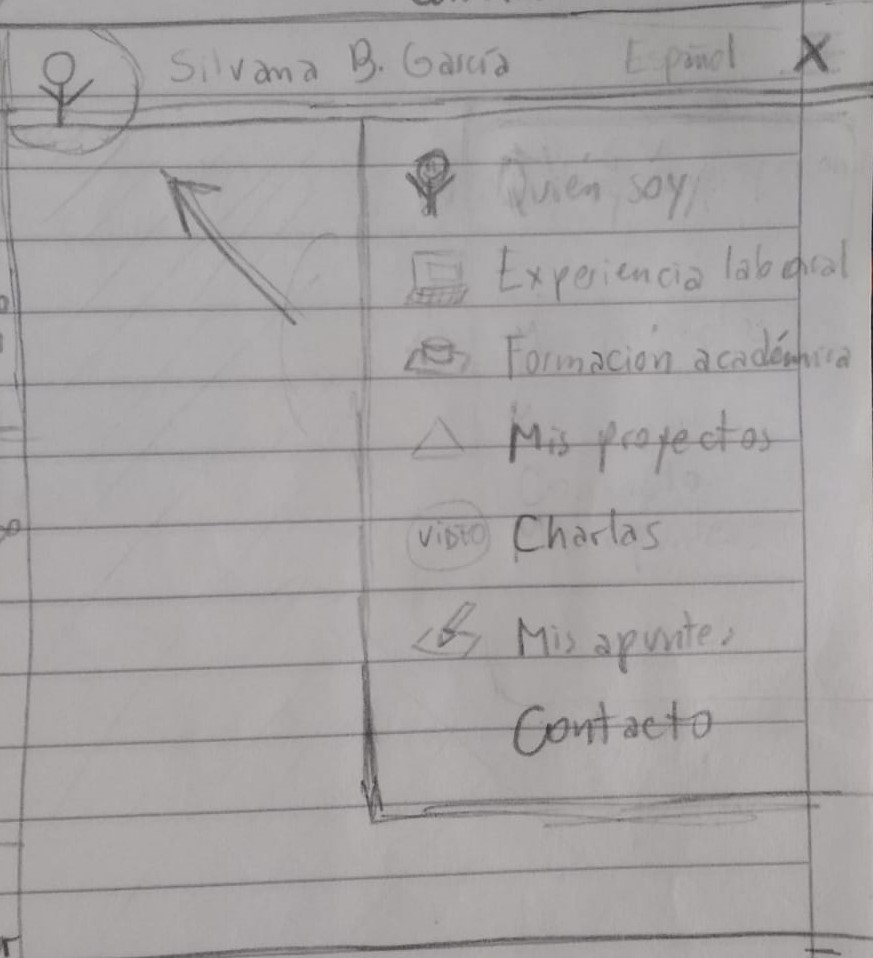 Silvana B. García Español X
Quién soy
Experiencia laboral
Formación académica
Mis proyectos
VIDEO Charlas
Mis apuntes
Contacto